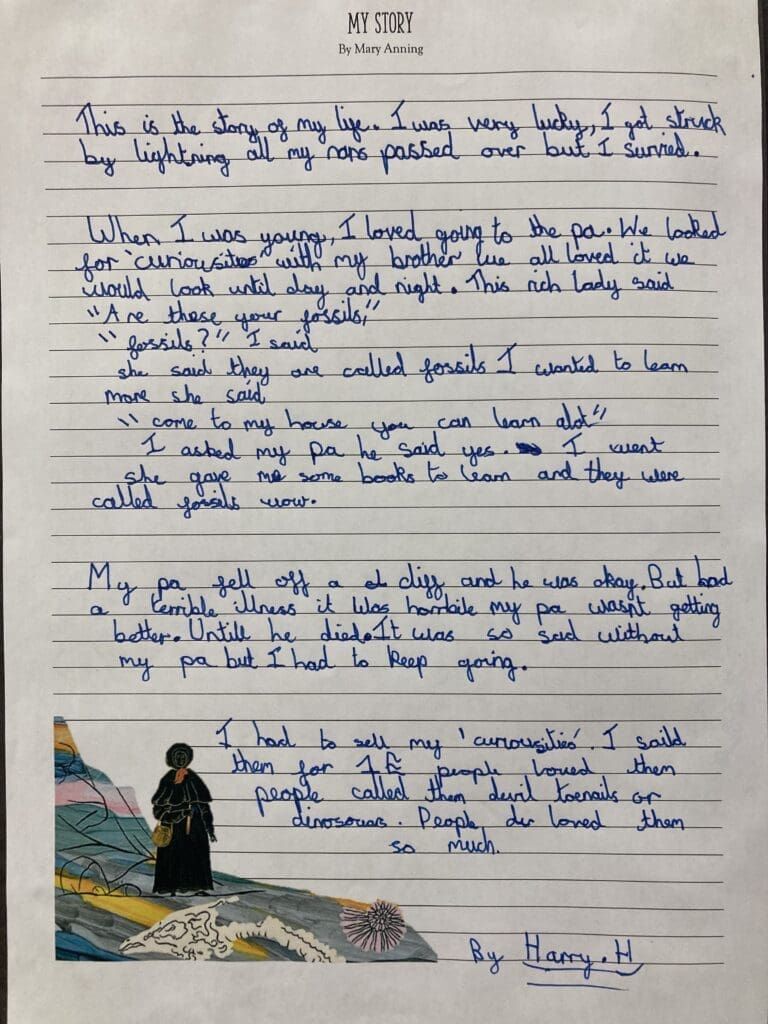 MY STORY
By Mary Anning
This is the story of my life. I was very lucky, I got struck
by lightning all my nans passed over but I survied.
When I was young, I loved going to the pa. We looked
for 'curiousities' with my brother we all loved it we
would look until day and night. This rich lady said
"Are these your fossils,"
"fossils?" I said
she said they are called fossils I wanted to learn
more she said
"come to my house you can learn alot"
I asked my pa he said yes. I went
she gave me some books to learn and they were
called fossils now.
My pa fell off a cliff and he was okay. But had
a terrible illness it was horrbile my pa wasnt getting
better. Untill he died. It was so sad without
my pa but I had to keep going.
I had to sell my 'curiousities'. I saild
them for 1 people loved them
people called them devil toenails or
dinosouars. People loved them
so much.
By Harry.H